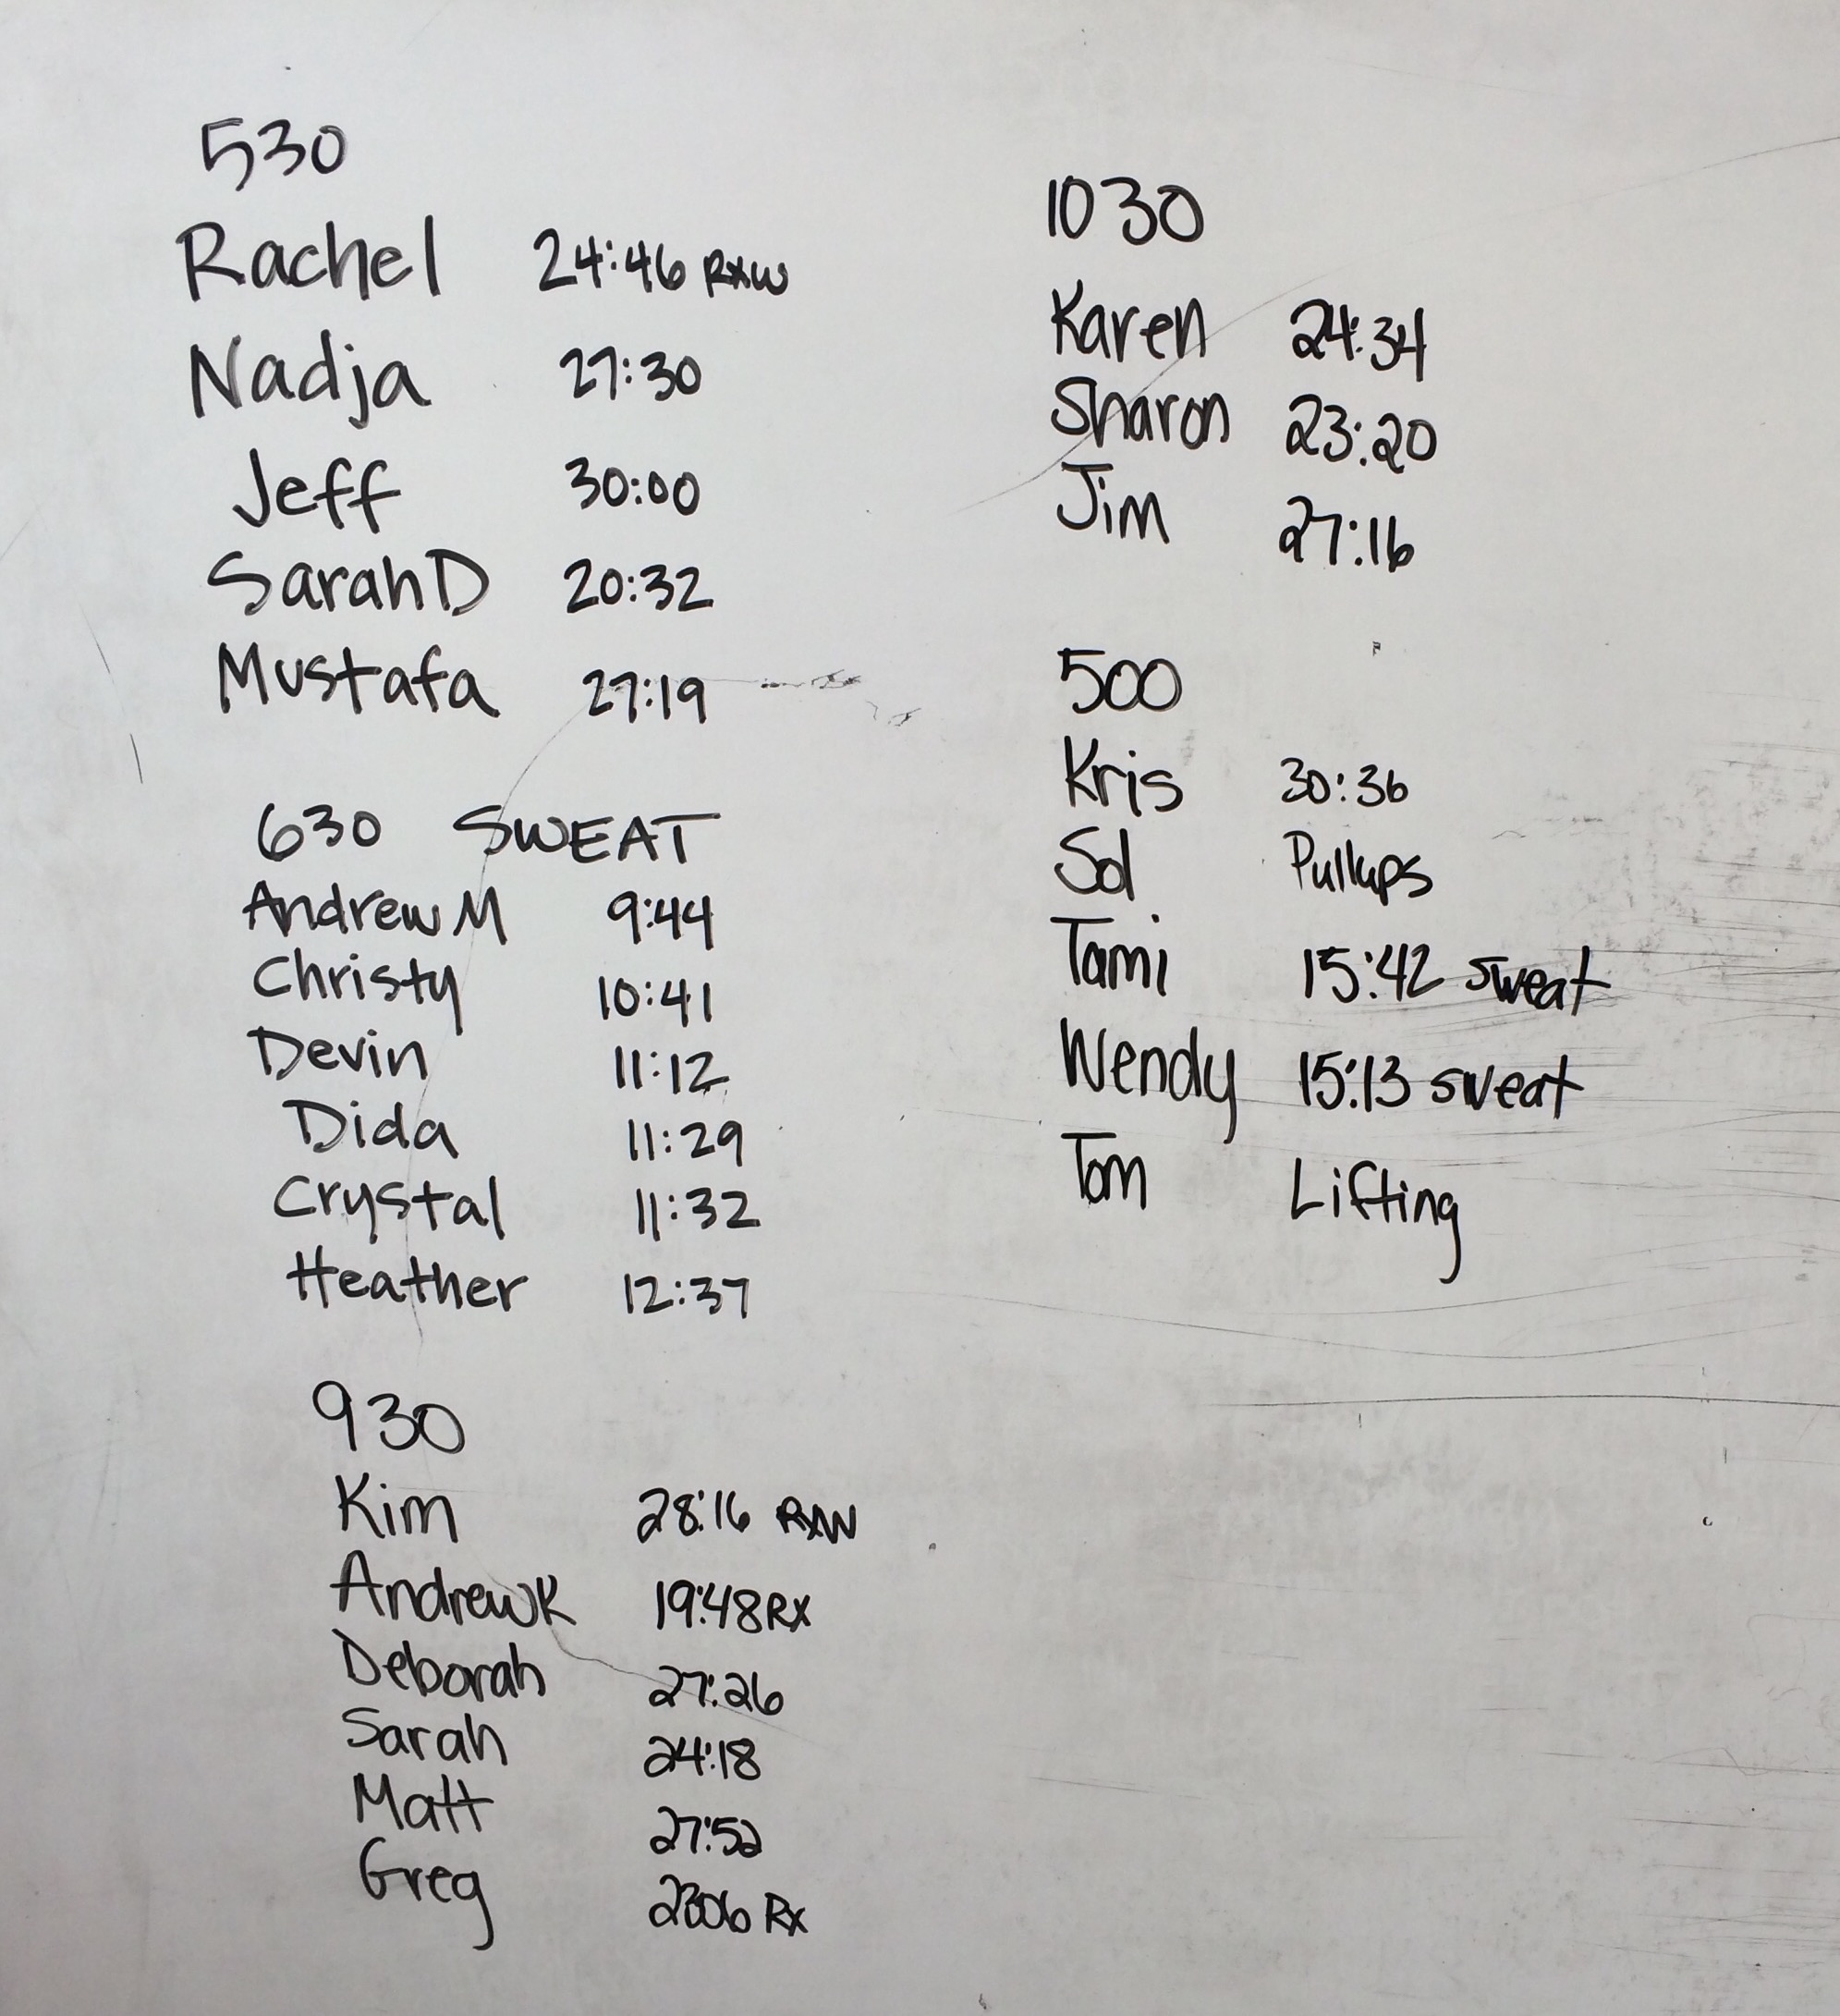 530
Rachel 24:46 RXW
Nadja 27:30
Jeff 30:00
Sarah D 20:32
Mustafa 27:19
630 SWEAT
Andrew M 9:44
Christy 10:41
Devin 11:12
Dida 11:29
Crystal 11:32
Heather 12:37
930
Kim 28:16 RXW
Andrew K 19:48 RX
Deborah 27:26
Sarah 24:18
Matt 27:52
Greg 2306 Rx
1030
Karen 24:34
Sharon 23:20
Jim 27:16
500
Kris 30:36
Sol Pullups
Tami 15:42 sweat
Wendy 15:13 sweat
Tom Lifting